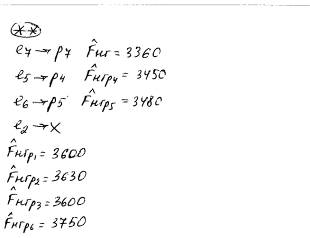 (**)
e₇→p₇ F̂нг = 3360
e₅→p₄ F̂нгр₄ = 3450
e₆→p₅ F̂нгр₅ = 3480
e₂→x
F̂нгр₁ = 3600
F̂нгр₂ = 3630
F̂нгр₃ = 3600
F̂нгр₆ = 3750